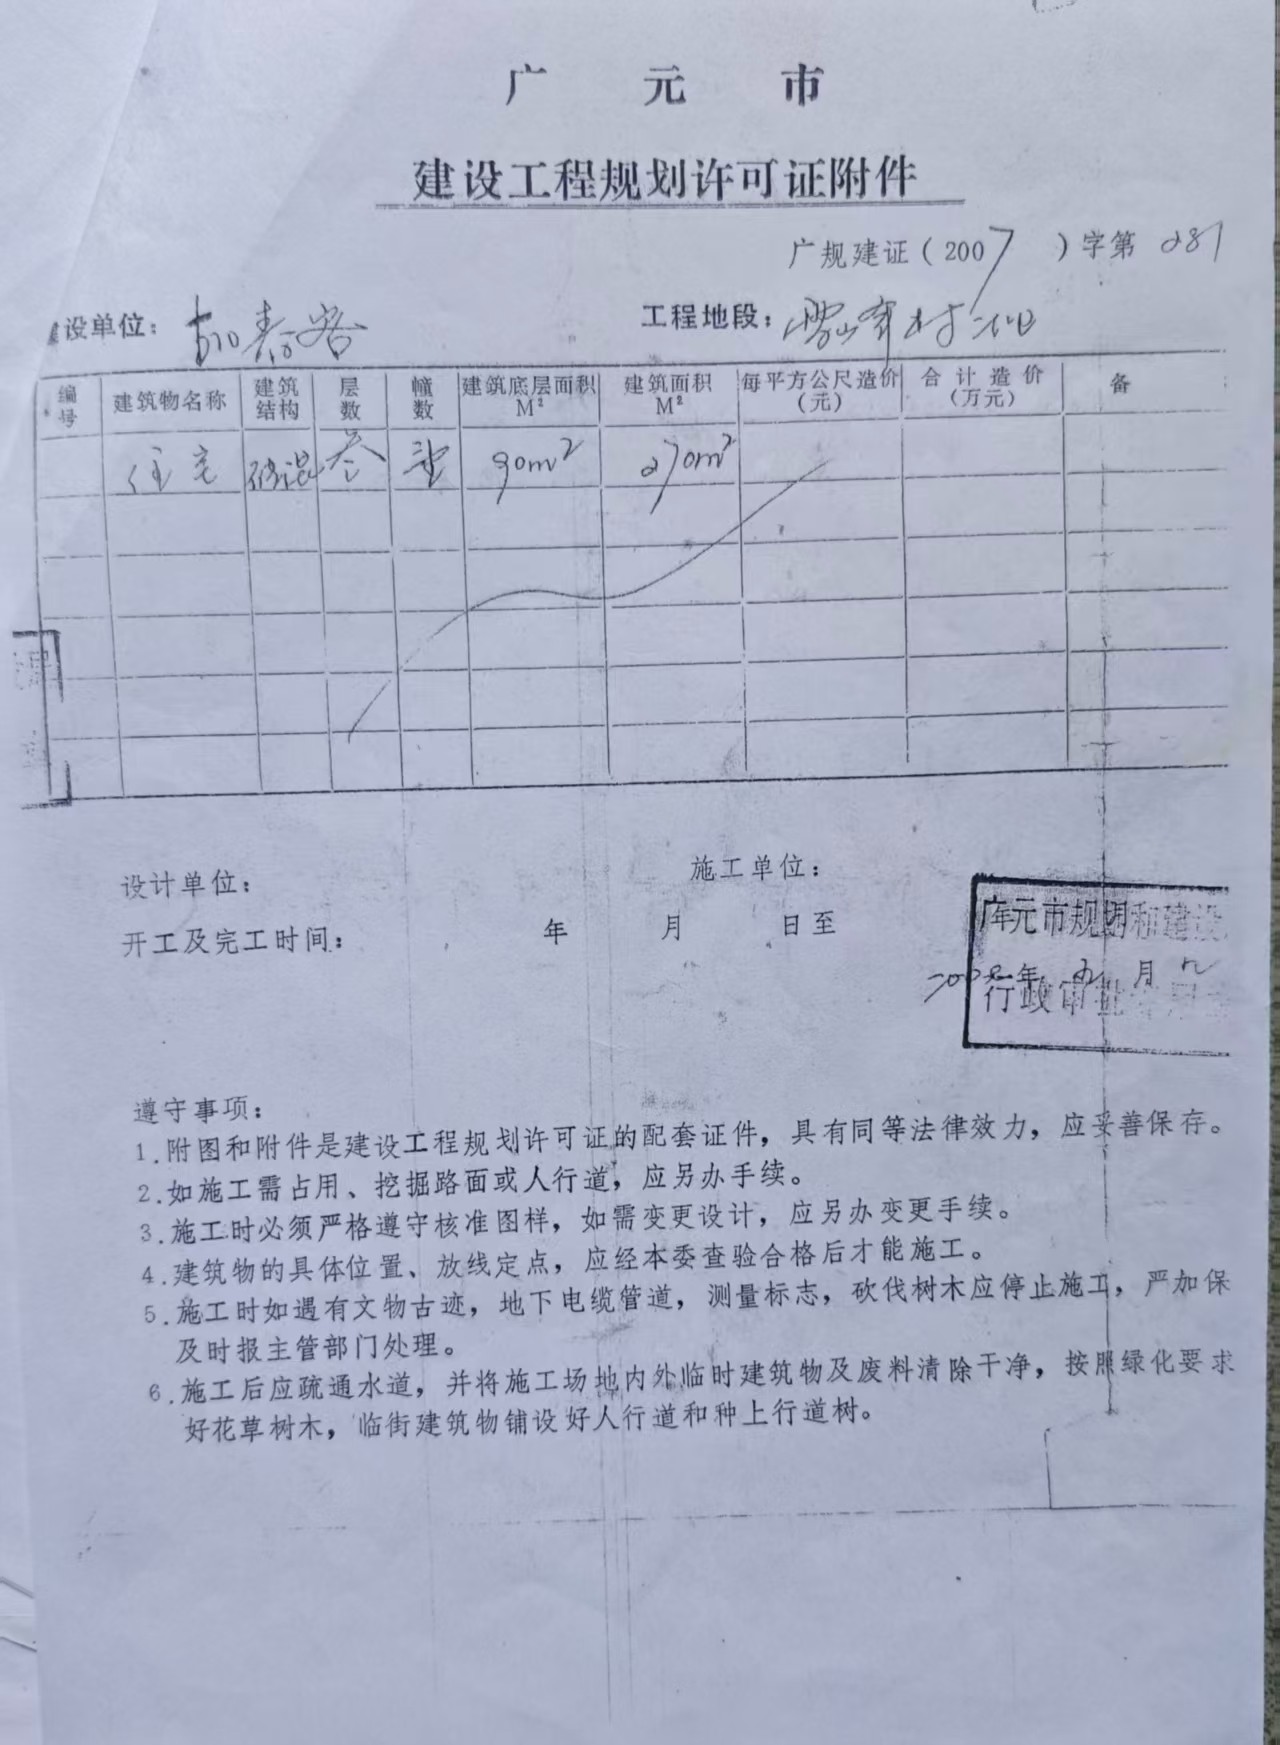 广元市
建设工程规划许可证附件
广规建证（2007）字第 281
设单位： 春容 工程地段： 雪 村
编号 建筑物名称 建筑结构 层数 幢数 建筑底层面积M² 建筑面积M² 每平方公尺造价（元） 合计造价（万元） 备
住宅 砖混 叁 壹 90m² 270m²
设计单位： 施工单位：
开工及完工时间： 年 月 日至 年 月
广元市规划和建设
年 月
行政审批专用
遵守事项：
1.附图和附件是建设工程规划许可证的配套证件，具有同等法律效力，应妥善保存。
2.如施工需占用、挖掘路面或人行道，应另办手续。
3.施工时必须严格遵守核准图样，如需变更设计，应另办变更手续。
4.建筑物的具体位置、放线定点，应经本委查验合格后才能施工。
5.施工时如遇有文物古迹，地下电缆管道，测量标志，砍伐树木应停止施工，严加保
及时报主管部门处理。
6.施工后应疏通水道，并将施工场地内外临时建筑物及废料清除干净，按照绿化要求
好花草树木，临街建筑物铺设好人行道和种上行道树。